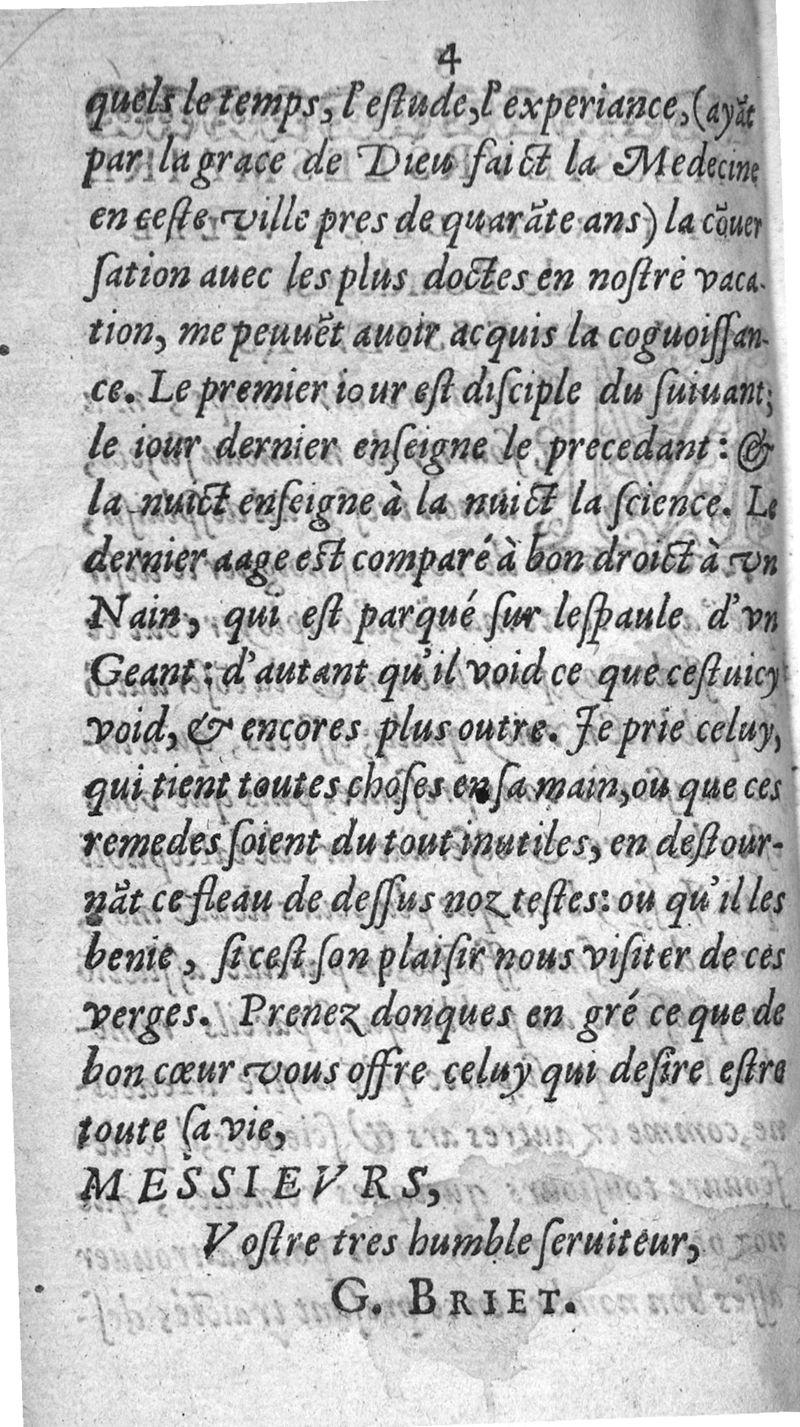 4
quels le temps, l'eſtude, l'experiance, (ayãt
par la grace de Dieu faict la Medecine
en ceſte ville pres de quarãte ans) la cõuer
ſation auec les plus doctes en noſtre vaca-
tion, me peuuẽt auoir acquis la coguoiſſan-
ce. Le premier iour eſt diſciple du ſuiuant;
le iour dernier enſeigne le precedant: &
la nuict enſeigne à la nuict la ſcience. Le
dernier aage est comparé à bon droict à vn
Nain, qui eſt parqué ſur leſpaule d'vn
Geant: d'autant qu'il void ce que ceſtuicy
void, & encores plus outre. Je prie celuy,
qui tient toutes choſes en ſa main, ou que ces
remedes ſoient du tout inutiles, en deſtour-
nãt ce fleau de deſſus noz teſtes: ou qu'il les
benie, ſi ceſt ſon plaiſir nous viſiter de ces
verges. Prenez donques en gré ce que de
bon cœur vous offre celuy qui deſire eſtre
toute ſa vie,
MESSIEVRS,
Voſtre tres humble ſeruiteur,
G. BRIET.